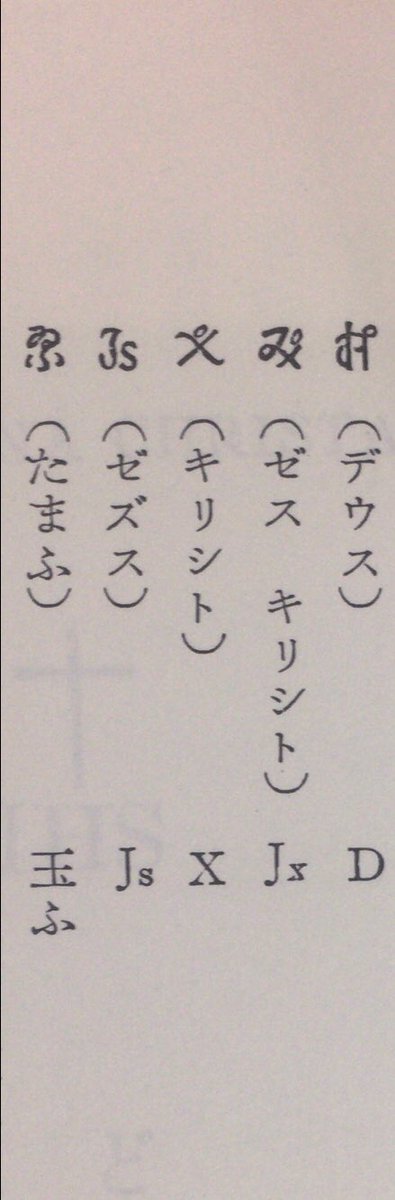 (デウス) D
(ゼス キリシト) Jx
(キリシト) X
Js (ゼズス) Js
(たまふ) 玉ふ